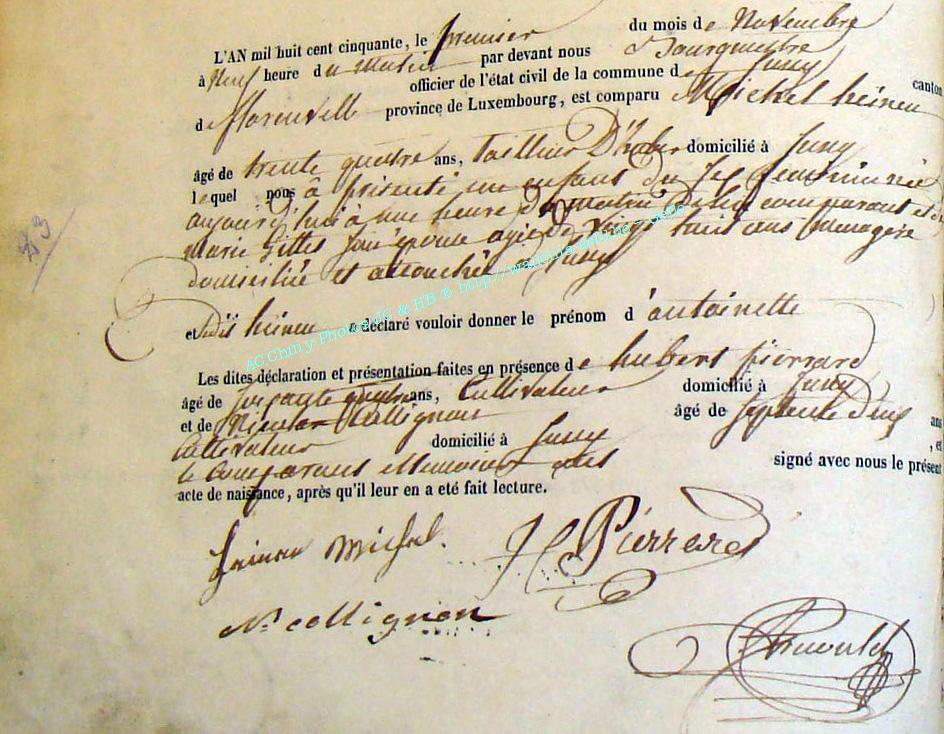 L'AN mil huit cent cinquante, le premier du mois de Novembre
à Neuf heure du Matin par devant nous
officier de l'état civil de la commune d Juny canton
de florenville province de Luxembourg, est comparu Michel heinen
âgé de trente quatre ans, tailleur D'habis domicilié à Juny
lequel nous à présenté un enfant du feminin née
aujourd'hui à une heure du matin De lui comparant et de
marie Gilles son épouse agée de vingt huit ans menagere
domiciliée et accouchée à Juny
et dit heinen a déclaré vouloir donner le prénom d'antoinette
Les dites déclaration et présentation faites en présence de hubert pierrard
âgé de quatre ans, Cultivateur domicilié à Juny
et de Nicolas Collignon âgé de septente deux ans
Cultivateur domicilié à Juny , et
le Comparant et temoins ont signé avec nous le présent
acte de naissance, après qu'il leur en a eté fait lecture.
heinen Michel. H Pierrered
N. collignon
43
AC Chiny Photos JG & HB ® http://